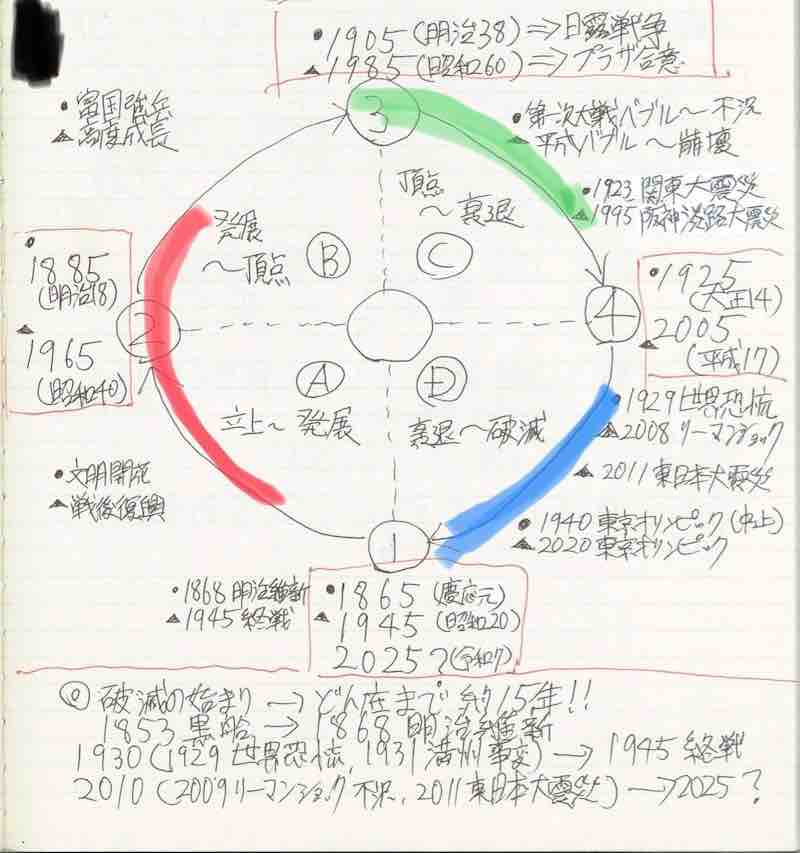 •1905(明治38)⇒日露戦争
▲1985(昭和60)⇒プラザ合意
•富国強兵
▲高度成長
③
•第一次大戦バブル〜不況
▲平成バブル 〜崩壊
•1923 関東大震災
▲1995 阪神淡路大震災
頂点
〜衰退
発展
〜頂点
Ⓑ
Ⓒ
•1885
(明治18)
▲1965
(昭和40)
②
④
•1925
(大正14)
▲2005
(平成17)
Ⓐ
Ⓓ
立上〜発展
衰退〜破滅
•1929世界恐慌
▲2008リーマンショック
▲2011東日本大震災
•文明開花
▲戦後復興
•1940東京オリンピック(中止)
▲2020東京オリンピック
①
•1868明治維新
▲1945終戦
•1865(慶応元)
▲1945(昭和20)
2025?(令和7)
◎ 破滅の始まり→どん底まで約15年!!
1853 黒船→1868 明治維新
1930(1929世界恐慌,1931満州事変)→1945終戦
2010(2009リーマンショック不況,2011東日本大震災)→2025?